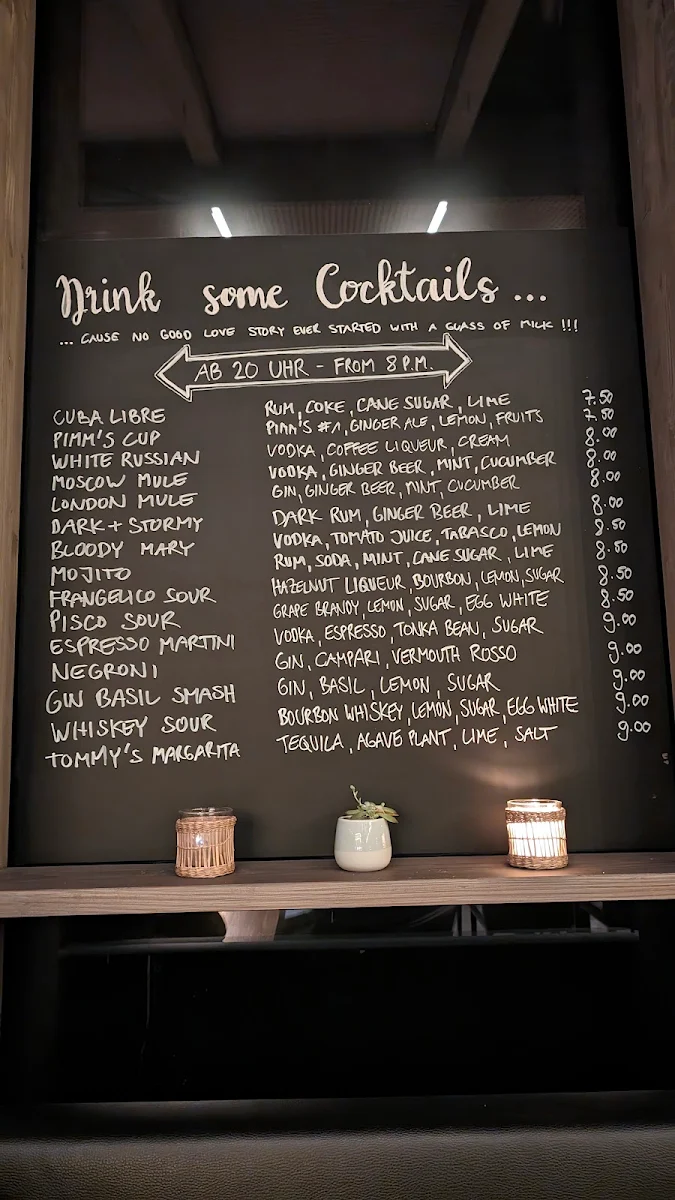 Drink some Cocktails ...
... CAUSE NO GOOD LOVE STORY EVER STARTED WITH A GLASS OF MILK !!!
AB 20 UHR - FROM 8 P.M.
CUBA LIBRE RUM, COKE, CANE SUGAR, LIME 7.50
PIMM'S CUP PIMM'S #1, GINGER ALE, LEMON, FRUITS 7.50
WHITE RUSSIAN VODKA, COFFEE LIQUEUR, CREAM 8.00
MOSCOW MULE VODKA, GINGER BEER, MINT, CUCUMBER 8.00
LONDON MULE GIN, GINGER BEER, MINT, CUCUMBER 8.00
DARK + STORMY DARK RUM, GINGER BEER, LIME 8.00
BLOODY MARY VODKA, TOMATO JUICE, TABASCO, LEMON 8.50
MOJITO RUM, SODA, MINT, CANE SUGAR, LIME 8.50
FRANGELICO SOUR HAZELNUT LIQUEUR, BOURBON, LEMON, SUGAR 8.50
PISCO SOUR GRAPE BRANDY, LEMON, SUGAR, EGG WHITE 8.50
ESPRESSO MARTINI VODKA, ESPRESSO, TONKA BEAN, SUGAR 9.00
NEGRONI GIN, CAMPARI, VERMOUTH ROSSO 9.00
GIN BASIL SMASH GIN, BASIL, LEMON, SUGAR 9.00
WHISKEY SOUR BOURBON WHISKEY, LEMON, SUGAR, EGG WHITE 9.00
TOMMY'S MARGARITA TEQUILA, AGAVE PLANT, LIME, SALT 9.00